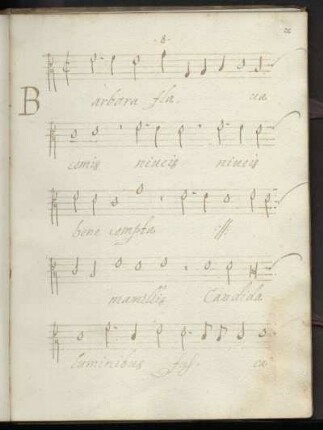 · 8 ·
Barbara fla. ua
comis niueis niueis
bene compta :ff:
mamillis Candida
luminibus fus. ca